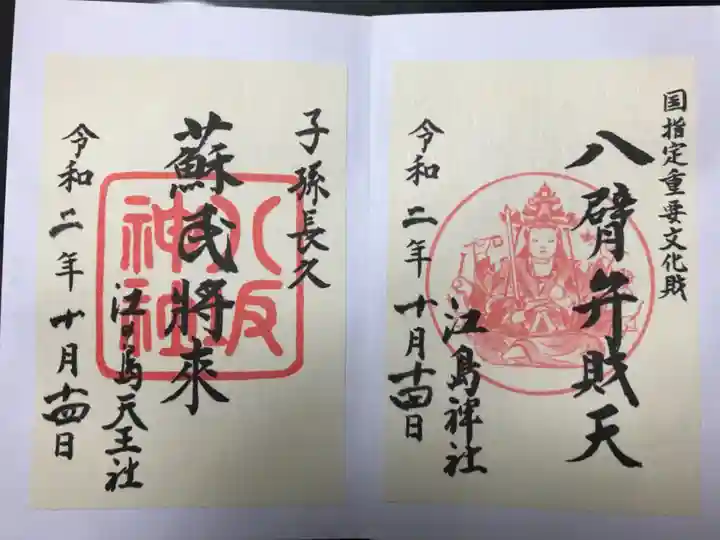 国指定重要文化財
八臂弁財天
江島神社
令和二年十月十四日
子孫長久
蘇民將來
八坂神社
江の島天王社
令和二年十月十四日